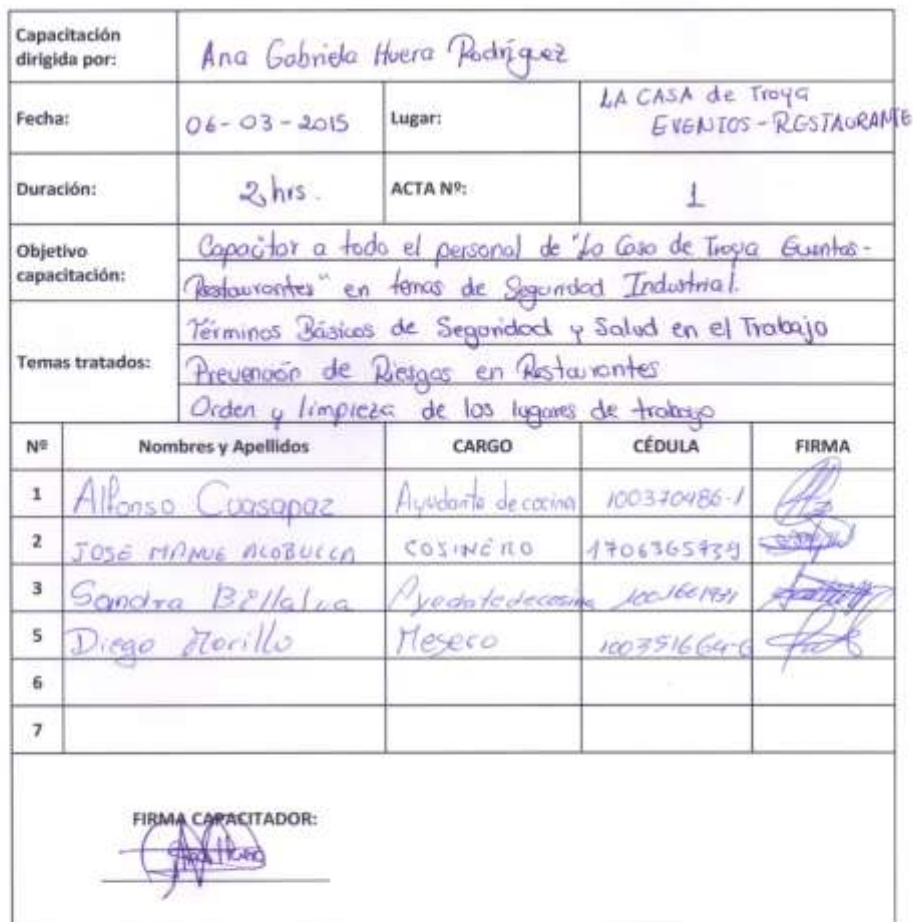 Capacitación
dirigida por: Ana Gabriela Huera Rodríguez
Fecha: 06-03-2015 Lugar: LA CASA de Troya
EVENTOS-RESTAURANTE
Duración: 2 hrs. ACTA Nº: 1
Objetivo
capacitación:
Capacitar a todo el personal de "La Casa de Troya Eventos-
Restaurantes" en temas de Seguridad Industrial.
Temas tratados:
Términos Básicos de Seguridad y Salud en el Trabajo
Prevención de Riesgos en Restaurantes
Orden y limpieza de los lugares de trabajo
Nº Nombres y Apellidos CARGO CÉDULA FIRMA
1 Alfonso Cuasapaz Ayudante de cocina 100370486-1
2 JOSE MANUE COSINERO
3 Sandra Ayudatedecosina
5 Diego Morillo Mesero
6
7
FIRMA CAPACITADOR: